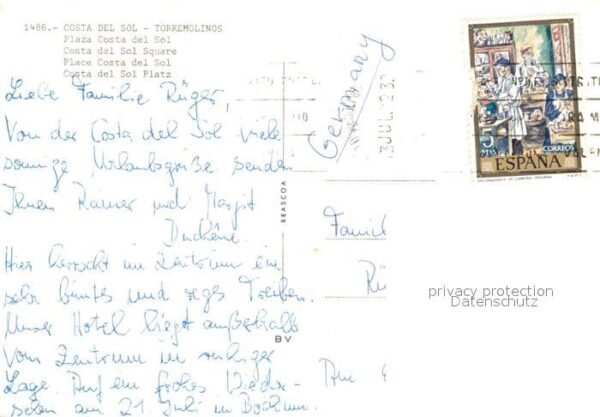 1486.- COSTA DEL SOL - TORREMOLINOS
Plaza Costa del Sol
Costa del Sol Square
Place Costa del Sol
Costa del Sol Platz
Liebe Familie Rüger,
Von der Costa del Sol viele
sonnige Urlaubsgrüße senden
Ihnen Rainer und Margit
Duchêne.
Hier herrscht im Zentrum ein
sehr buntes und reges Treiben.
Unser Hotel liegt außerhalb
vom Zentrum in ruhiger
Lage. Auf ein frohes Wieder-
sehen am 21. Juli in Bochum.
BEASCOA
BV
Germany
JUL
5
PTAS
CORREOS
ESPAÑA
Famil
Rü
Am
privacy protection
Datenschutz